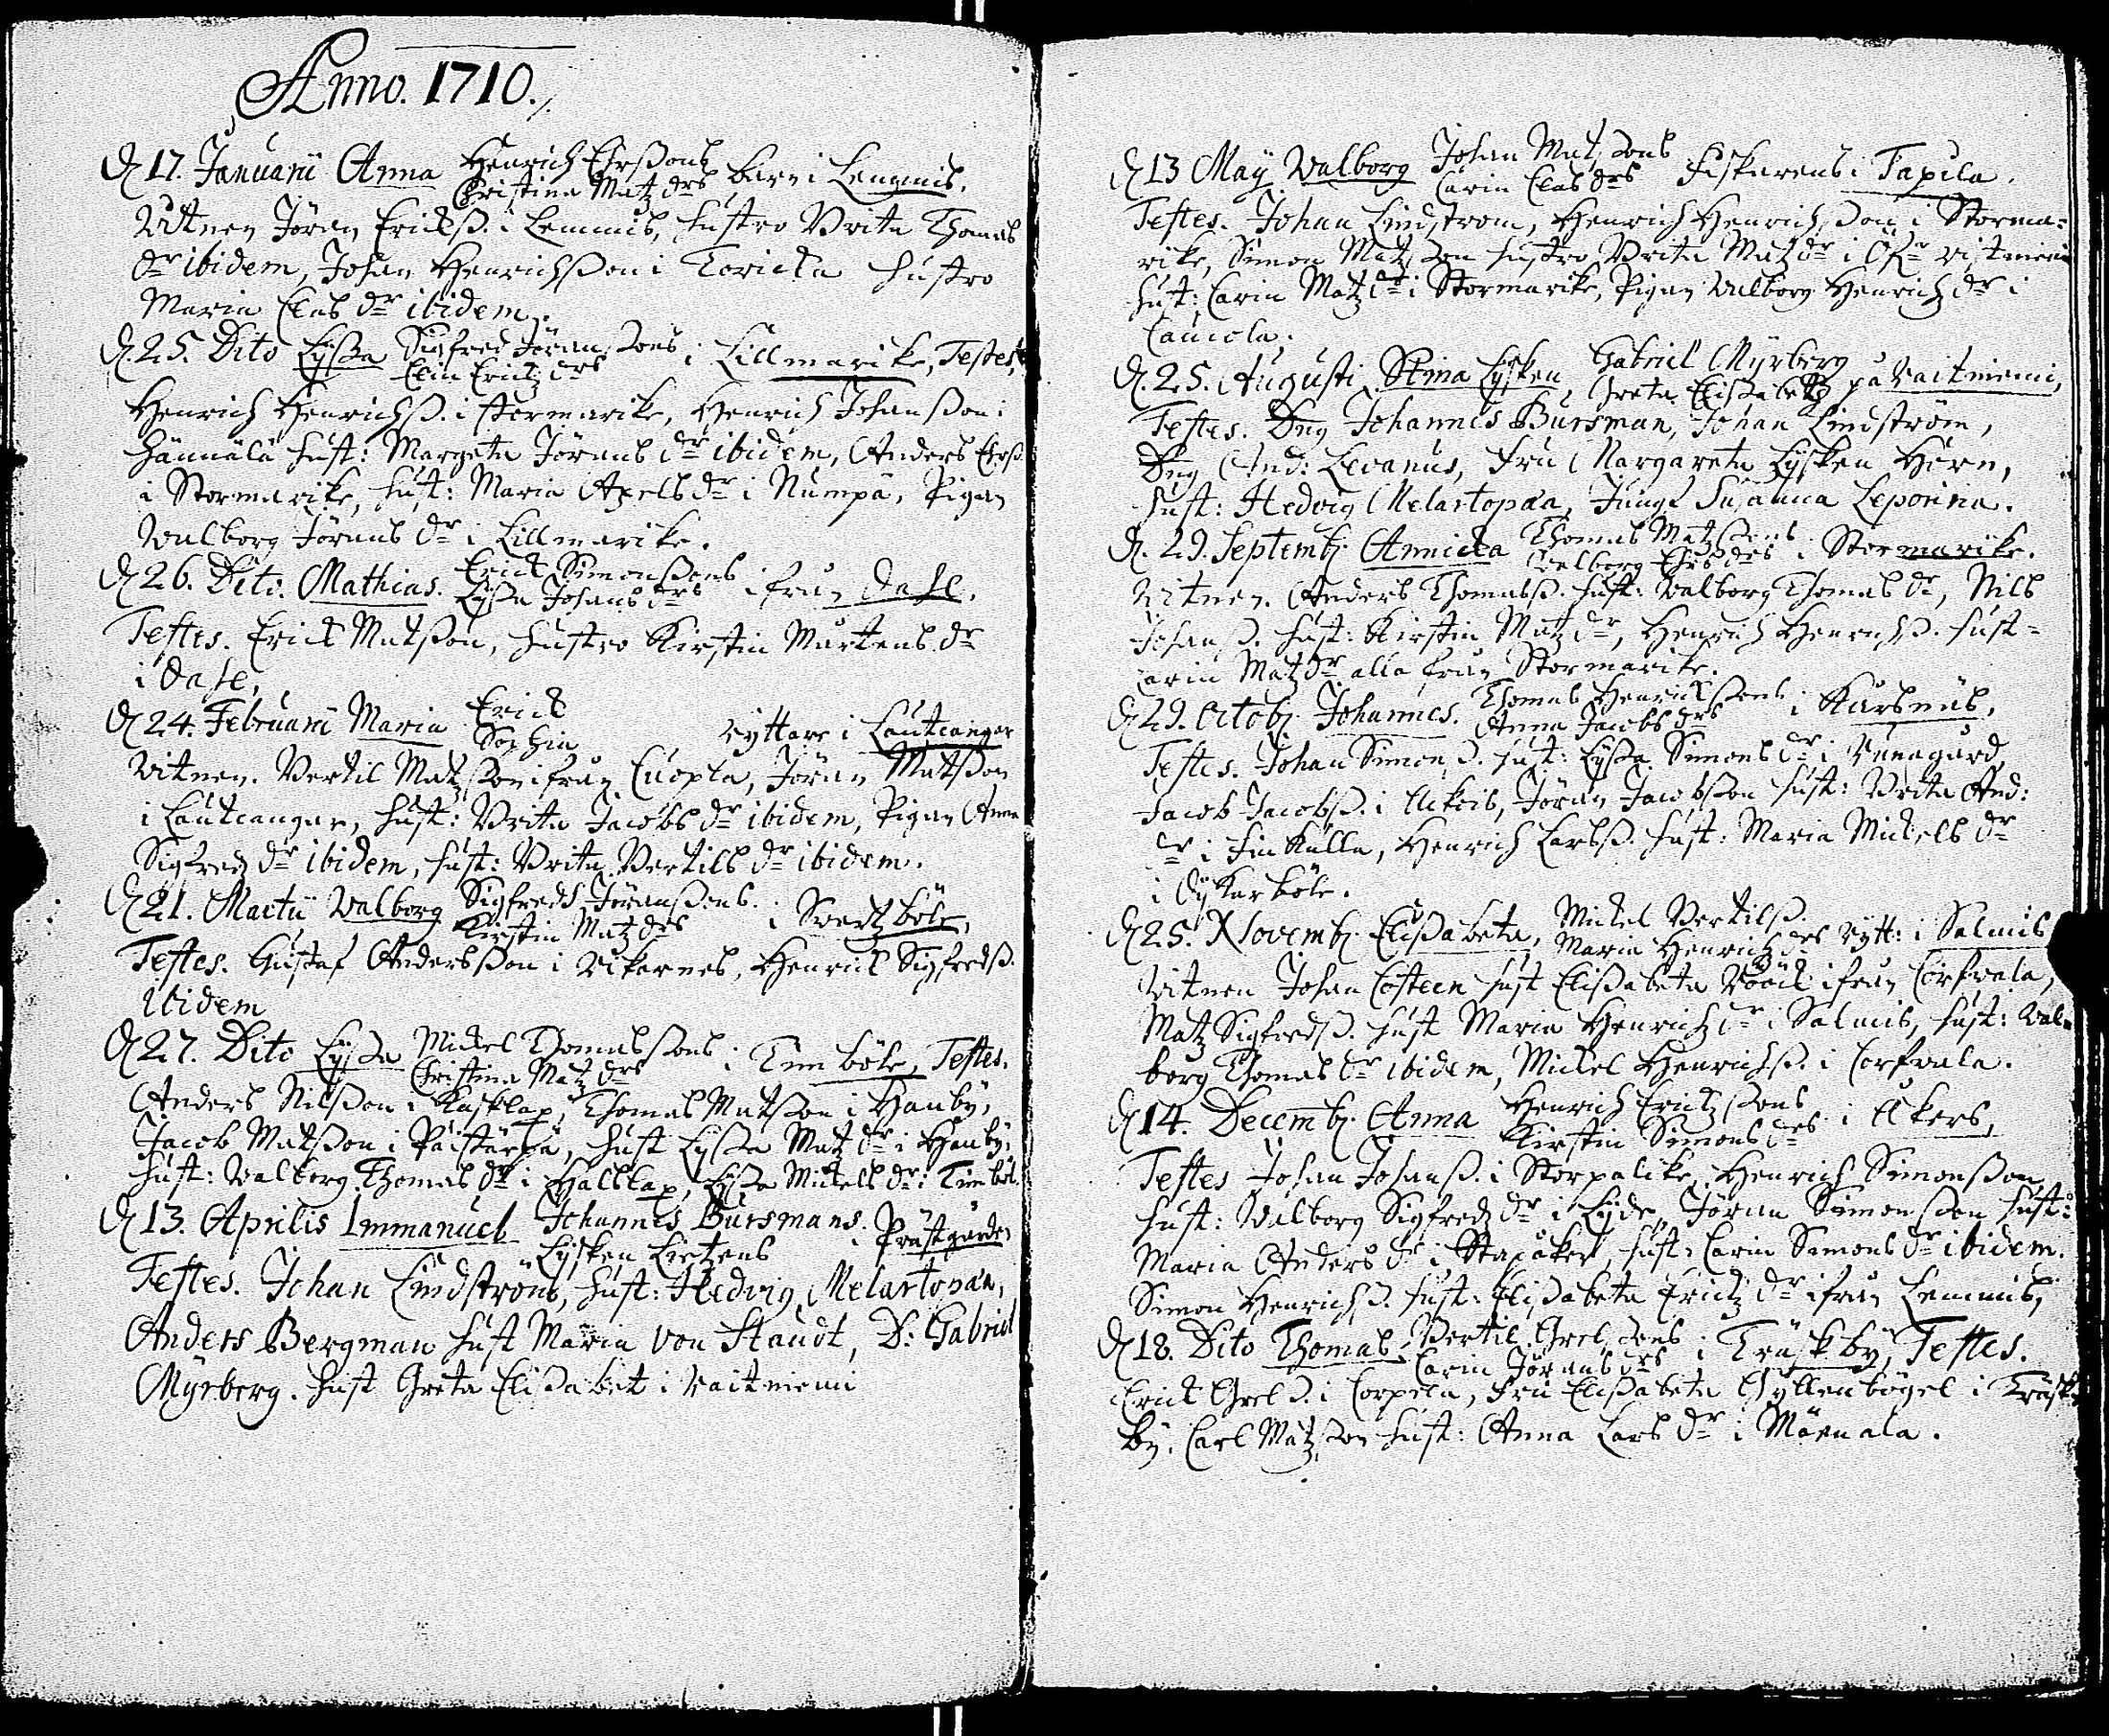 Anno. 1710.
D 17. Januarii Anna Henrich Ehrssons
Christina Matz drs barn i Lemnis.
Vitnen Jören Ericss. i Lemnis, hustro Brita Thomas
dr ibidem, Johan Henrichsson i Toricka hustro
Maria Clas dr ibidem.
D. 25. Dito Lyssa Sigfred Jöran sons
Elin Erichz drs i Lillmarike, Testes,
Henrich Henrichss. i stormarike, Henrich Johansson i
Hännälä hust: Margeta Jörans dr ibidem, Anders Ehrss
i Stormarike, hust: Maria Axels dr i Numpä, Pigan
Walborg Jörans dr i Lillmarike.
D 26. Dito. Mathias. Erich Simonssons
Lyssa Johans drs ifrån Dahl.
Testes. Erich Matsson, hustro Kirstin Mårtens dr
i Dahl.
D 24. Februarii Maria Erich
Sophia ryttare i Lautcangar
Vitnen. Bertil Matzson ifrån Cuopla, Jören Matsson
i Lautcangar, hust: Brita Jacobs dr ibidem, Pigan Anna
Sigfredz dr ibidem, hust: Brita Bertils dr ibidem.
D 21. Martii Valborg Sigfredh Jöranssons.
Kirstin Matz drs i Svartzböle,
Testes. Gustaf Andersson i Vikernes, Henrich Sigfredss.
ibidem
D 27. Dito Lyssa Mickel Thomassons
Christina Matz drs i Timböle, Testes.
Anders Nilsson i Kasklax, Thomas Matsson i Hauby,
Jacob Matsson i Päistärpä, hust Lyssa Matz dr i Hauby,
hust: Valborg Thomas dr i Hallslax, Lyssa Mickels dr i Timböl.
D 13. Aprilis Immanuel Johannes Bursmans.
Lysken Lietzens i Prästgården
Testes. Johan Lindströms, hust: Hedvig Melartopæa,
Anders Bergman hust Maria von Staudt, D: Gabriel
Myrberg. hust Greta Elisabet i Vaitniemi
D 13 May Walborg Johan Mat sons
Carin Clas drs Fiskarens i Tapila.
Testes. Johan Lindström, Henrich Henrichsson i Storma-
rike, Simon Matzson hustro Brita Matz dr i Öfr vitniemi
hust: Carin Matz dr i Stormarike, Pigan Walborg Henrich dr i
Cauiola.
D. 25. Augusti Stina Lysken, Gabriel Myrberg
Greta Elissabetz på Vaitniemi,
Testes. Dnn Johannes Bursman, Johan Lindström,
Dnn And: Levanus, Fru Margareta Lysken Hörn,
hust: Hedvig Melartopæa, Jungf Susanna Leporina.
D. 29. Septemb. Annicka Thomas Matzsons
Valborg Ehrs drs i Stormarike.
Vitnen. Anders Thomass. hust: Valborg Thomas dr, Nils
Johanss. hust: Kirstin Matz dr, Henrich Henrichss. hust-
Carin Matz dr alla från Stormarike.
D 29. Octob. Johannes. Thomas Henrichssons
Anna Jacobs drs i Karsnäs,
Testes. Johan Simonss. hust: Lyssa Simons dr i Vännegård,
Jacob Jacobss. i Ackois, Jören Jacobsson hust: Brita And:
dr i Finkulla, Henrich Larss. hust: Maria Mickels dr
i Dykarböle.
D 25. Novemb. Elissabeta, Mickel Bertilss.
Maria Henrichz drs rytt: i Salmis
Vitnen Johan Costeen hust Elissabeta Rööck ifrån Corfvala,
Matz Sigfredss. hust Maria Henrichz dr i Salmis, hust: Val-
borg Thomas dr ibidem, Mickel Henrichss. i Corfvala.
D 14. Decemb. Anna Henrich Erichz sons
Kirstin Simons drs i Akers,
Testes Johan Johanss. i Storpalike, Henrich Simonsson
hust: Valborg Sigfredz dr i Lyde, Jöran Simonsson hust:
Maria Anders dr i Stapåker, hust: Carin Simons dr ibidem.
Simon Henrichss. hust: Elissabeta Erichz dr ifrån Lemnis,
D 18. Dito Thomas, Bertil Grels sons
Carin Jörans drs i Träskby, Testes.
Erich Grelss. i Corpela, Fru Elissabeta Gyllenbögel i Träsk-
by, Carl Matzson hust: Anna Lars dr i Mäenala.